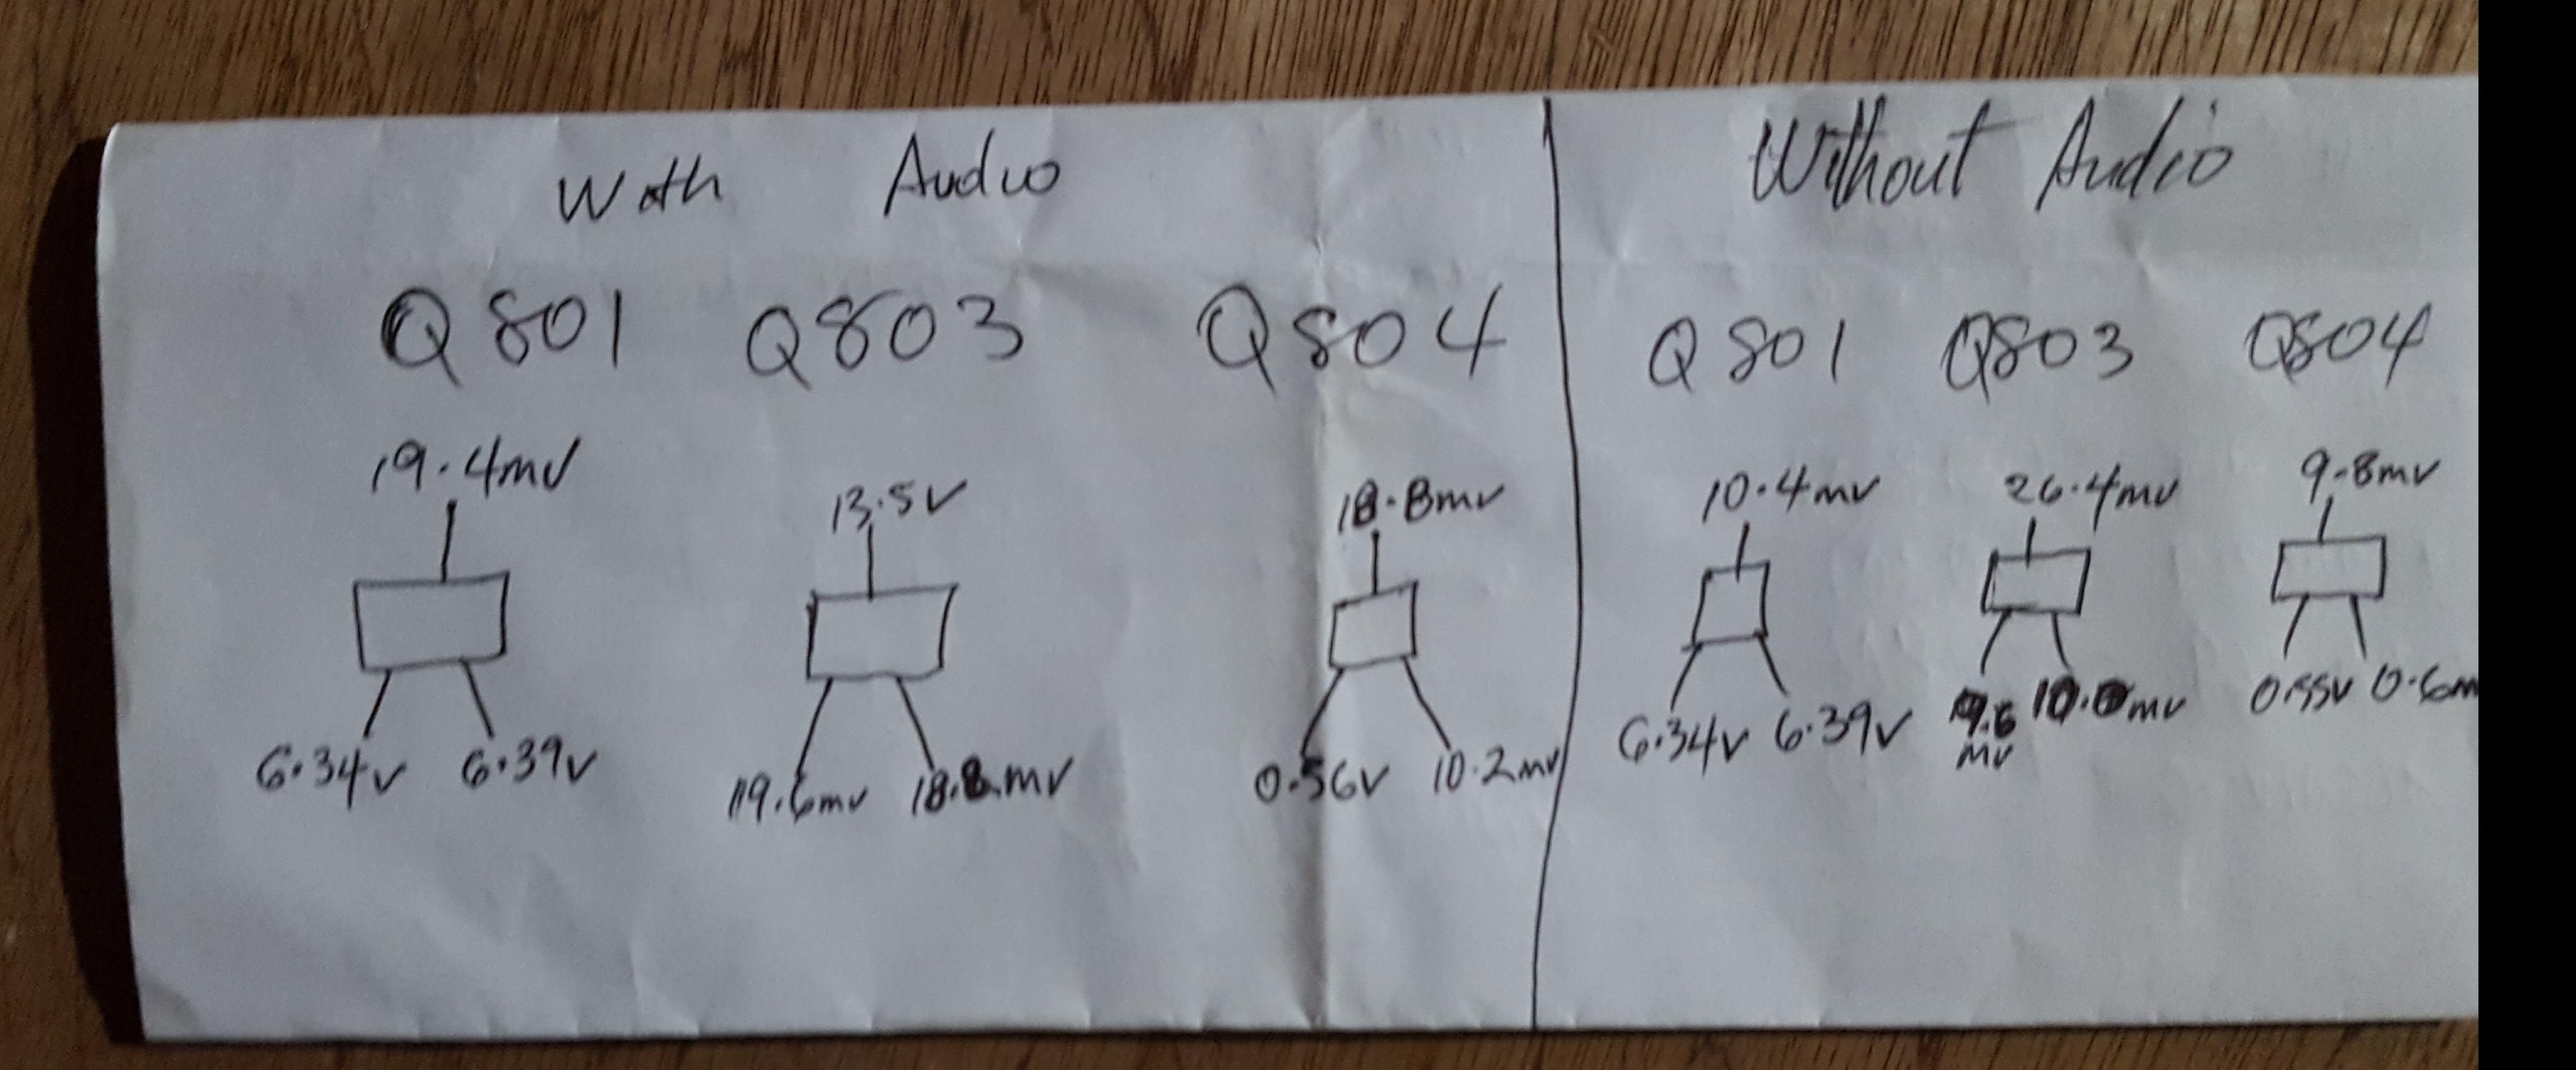 With Audio
Without Audio
Q801 Q803 Q804
Q801 Q803 Q804
19.4mV 13.5V 18.8mV
10.4mV 26.4mV 9.8mV
6.34V 6.39V 19.6mV 18.8mV 0.56V 10.2mV
6.34V 6.39V 9.6 mV 10.0mV 0.55V 0.6m